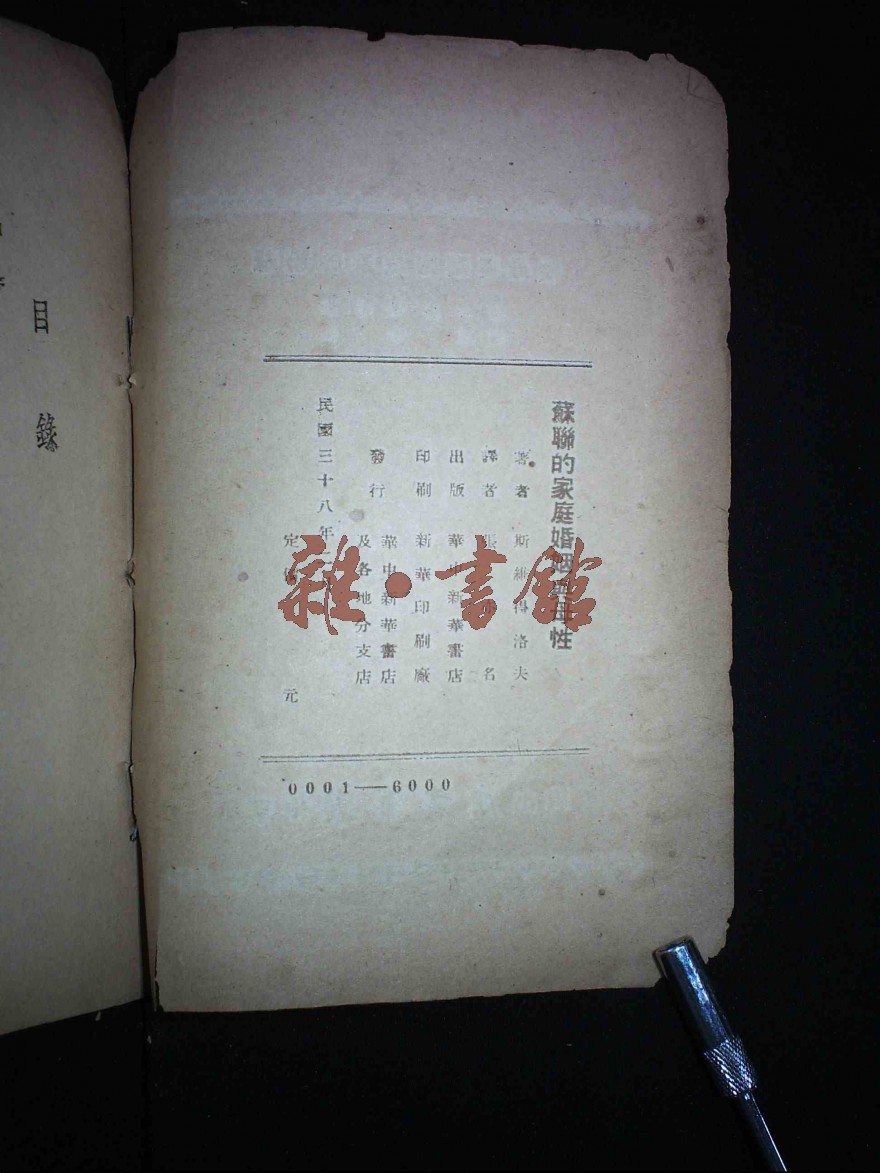 蘇聯的家庭婚姻與母性
著者 斯維得洛夫
譯者 張 名
出版 華中新華書店
印刷 新華印刷廠
發行 華中新華書店
及各地分支店
民國三十八年
定 元
0001—6000
目錄
雜·書館